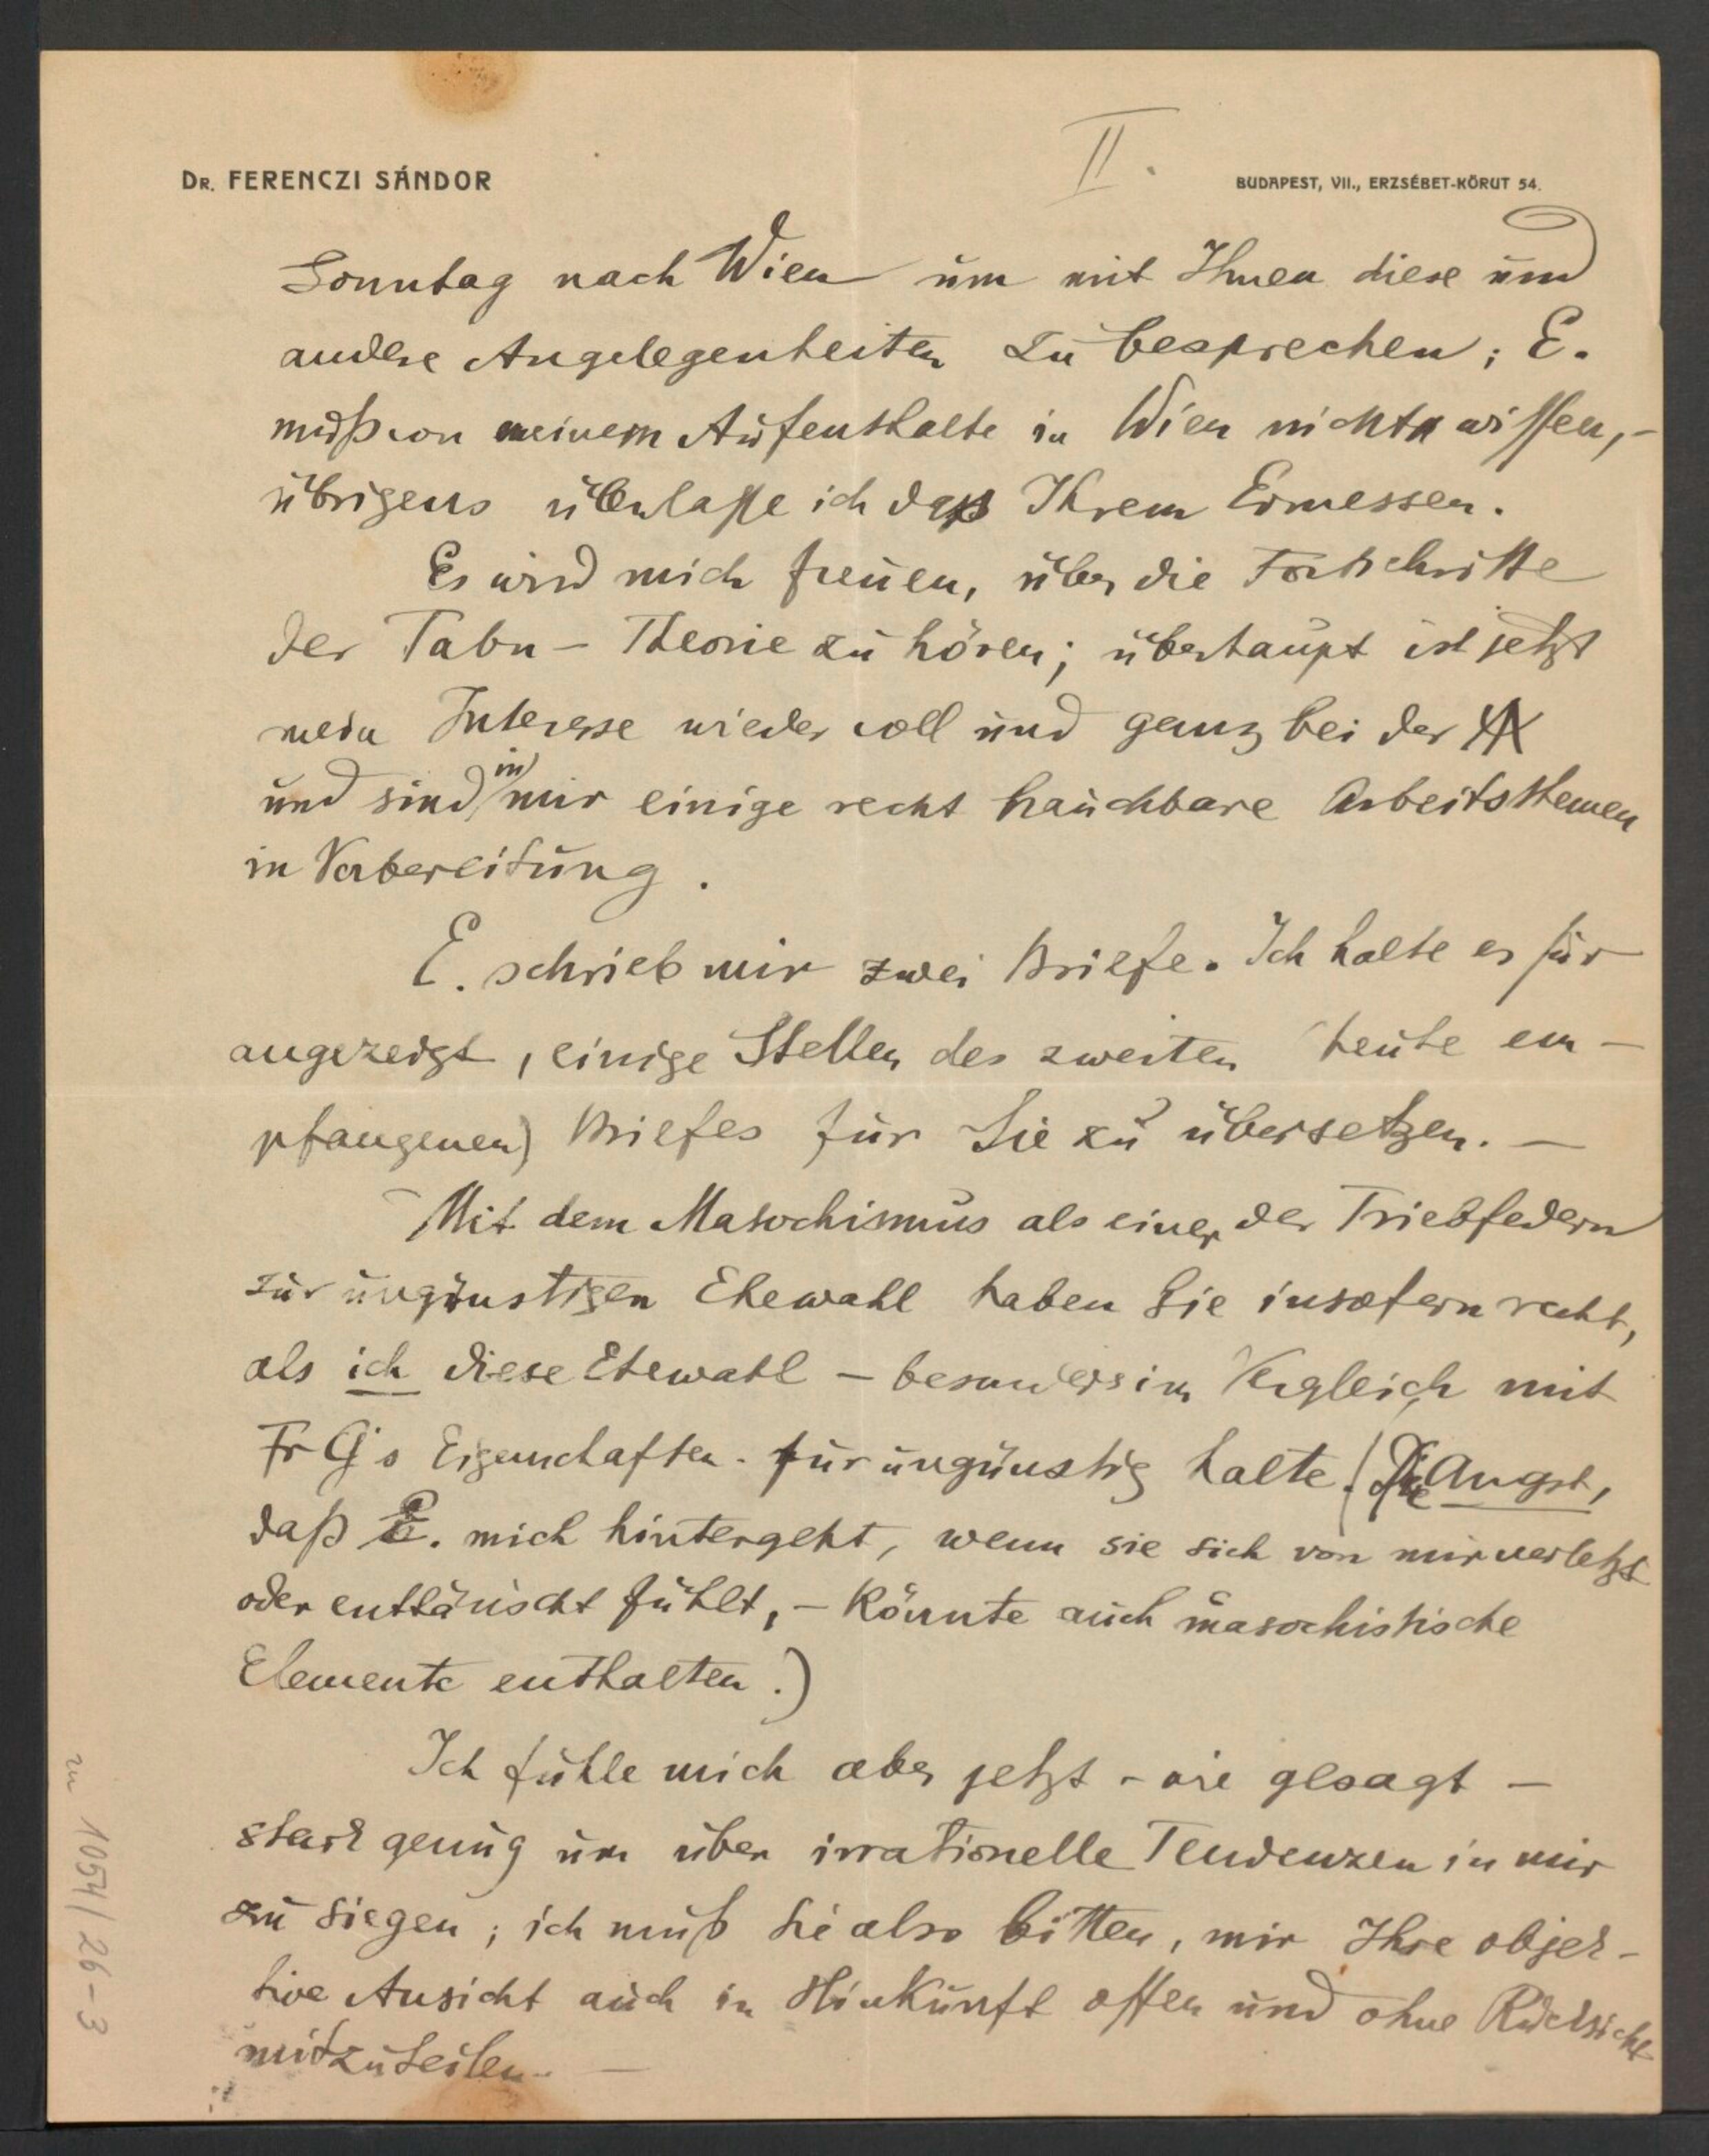 II.
DR. FERENCZI SÁNDOR
BUDAPEST, VII., ERZSÉBET-KÖRUT 54.
Sonntag nach Wien um mit Ihnen diese und
andere Angelegenheiten zu besprechen; E.
muß von meinem Aufenthalte in Wien nichts wissen, –
übrigens überlasse ich das Ihrem Ermessen.
Es wird mich freuen, über die Fortschritte
der Tabu – Theorie zu hören; überhaupt ist jetzt
mein Interesse wieder voll und ganz bei der ΨA
und sind in mir einige recht brauchbare Arbeitsthemen
in Vorbereitung.
E. schrieb mir zwei Briefe. Ich halte es für
angezeigt, einige Stellen des zweiten (heute em-
pfangenen) Briefes für Sie zu übersetzen. –
Mit dem Masochismus als einer der Triebfedern
zur ungünstigen Ehewahl haben Sie insofern recht,
als ich diese Ehewahl – besonders im Vergleich mit
Fr G's Eigenschaften - für ungünstig halte. (Die Angst,
daß E. mich hintergeht, wenn sie sich von mir verletzt
oder enttäuscht fühlt, – könnte auch masochistische
Elemente enthalten.)
Ich fühle mich aber jetzt – wie gesagt –
stark genug um über irrationelle Tendenzen in mir
zu siegen; ich muß Sie also bitten, mir Ihre objek-
tive Ansicht auch in Hinkunft offen und ohne Rücksicht
mitzuteilen. –
zu 1054/26-3